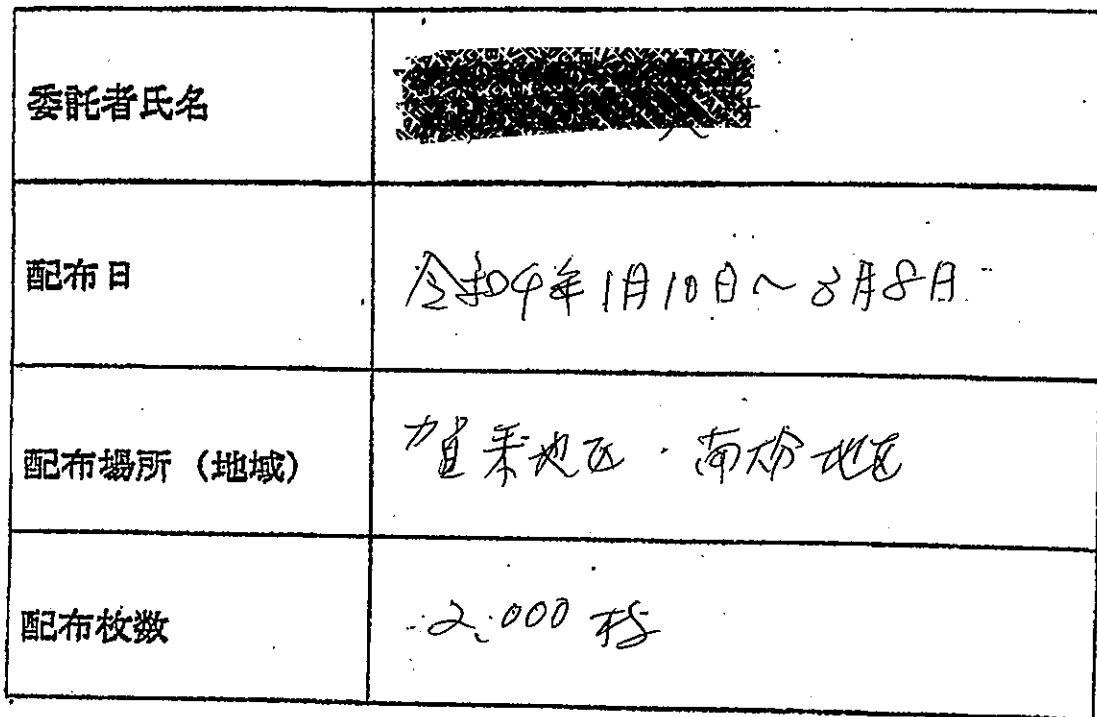 委託者氏名
配布日
令和4年1月10日~3月8日
配布場所（地域）
賀来地区・南大分地区
配布枚数
2,000枚